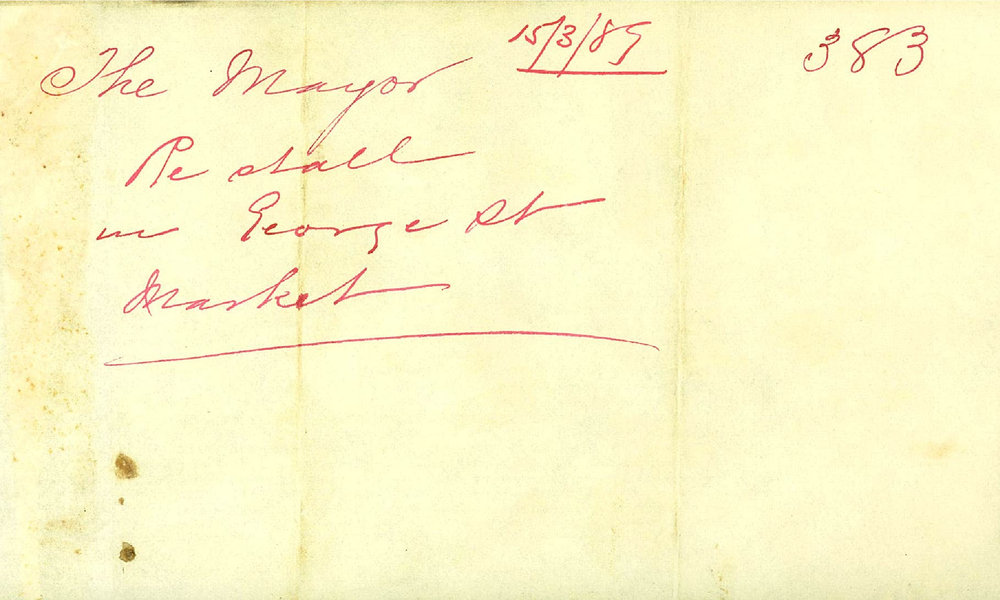 15/3/89
383
The Mayor
Re stall
in George St
Market